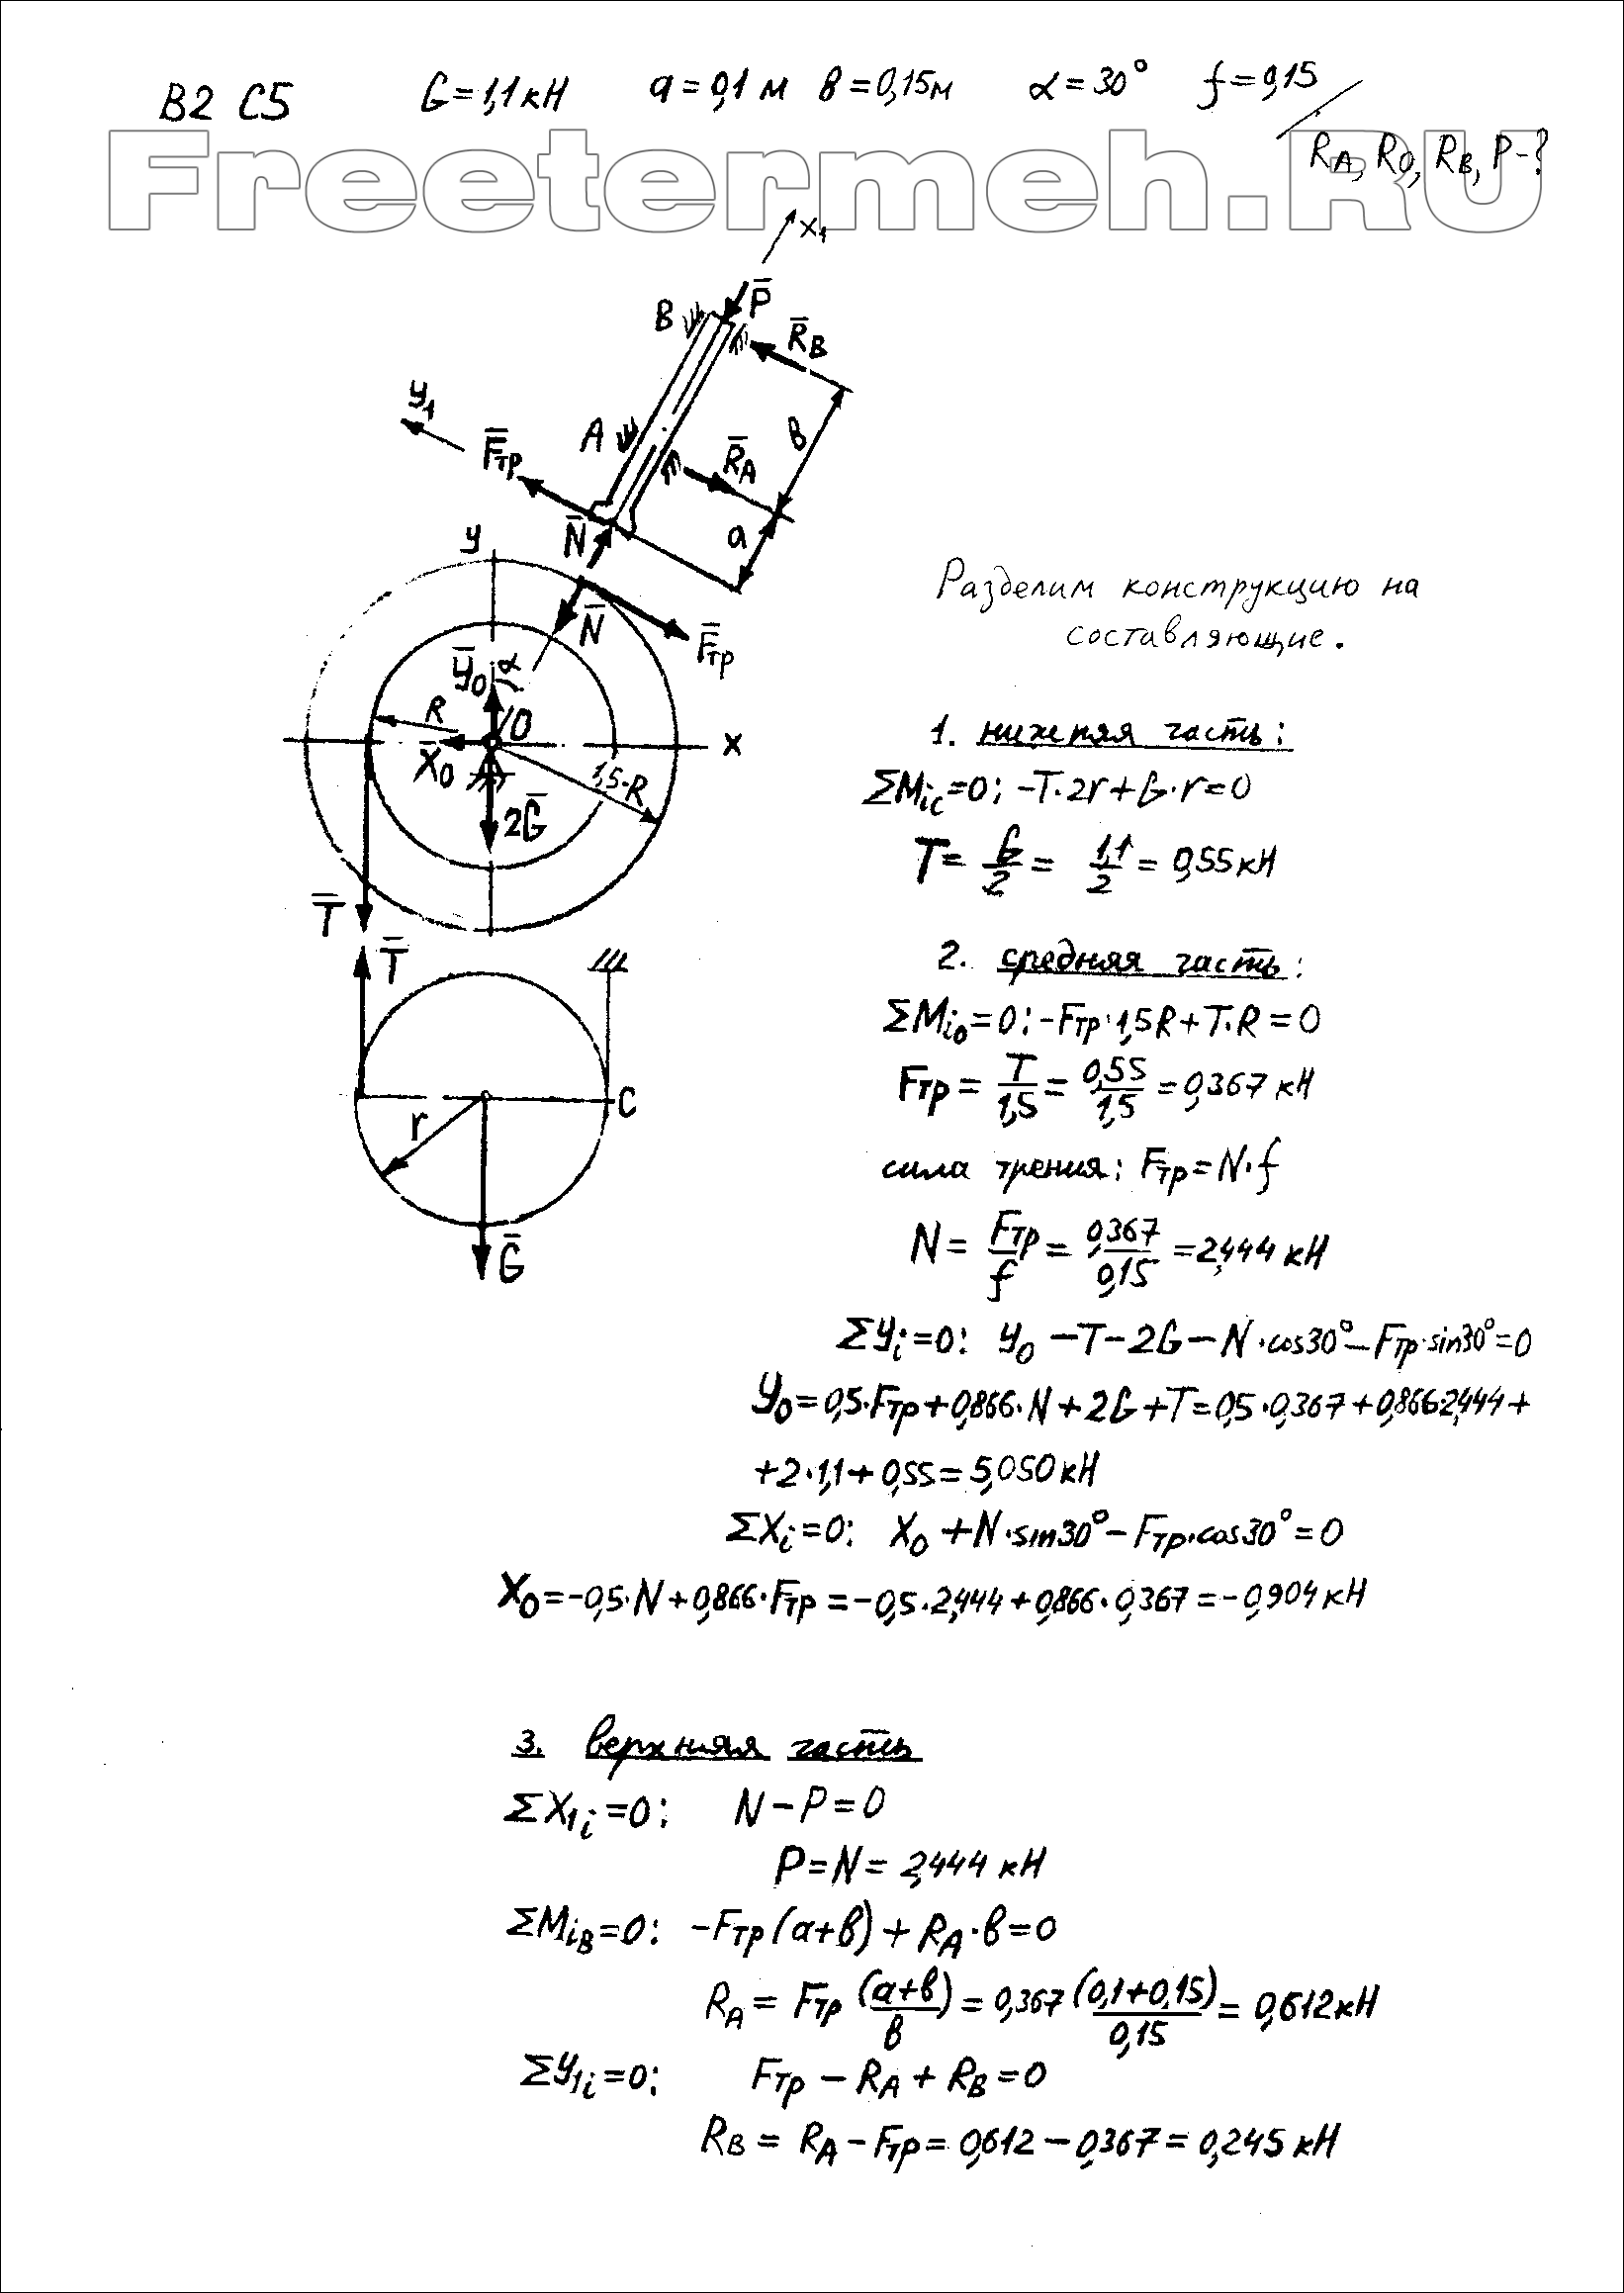 B2 C5 G=1,1кН a=0,1 м в=0,15м α=30° f=0,15
R_A, R_O, R_B, P-?
Freetermeh.RU
x₁
B P̄
R̄_B
y₁
F̄тр A R̄_A в
N̄ a
y
N̄ F̄тр
Ȳ₀ α
R O
X̄₀ x
1,5·R
2Ḡ
T̄
T̄
r C
Ḡ
Разделим конструкцию на
составляющие.
1. нижняя часть:
ΣMic=0: -T·2r+G·r=0
T= G/2 = 1,1/2 = 0,55кН
2. средняя часть:
ΣMi₀=0: -Fтр·1,5R+T·R=0
Fтр = T/1,5 = 0,55/1,5 = 0,367 кН
сила трения: Fтр=N·f
N= Fтр/f = 0,367/0,15 = 2,444 кН
ΣYi=0: Y₀ -T-2G-N·cos30°-Fтр·sin30°=0
Y₀=0,5·Fтр+0,866·N+2G+T=0,5·0,367+0,866·2,444+
+2·1,1+0,55=5,050кН
ΣXi=0: X₀ +N·sin30°-Fтр·cos30°=0
X₀=-0,5·N+0,866·Fтр=-0,5·2,444+0,866·0,367=-0,904кН
3. верхняя часть
ΣX₁i=0: N-P=0
P=N=2,444 кН
ΣMiB=0: -Fтр(a+в)+R_A·в=0
R_A = Fтр (a+в)/в = 0,367 (0,1+0,15)/0,15 = 0,612кН
ΣY₁i=0: Fтр - R_A + R_B=0
R_B = R_A-Fтр=0,612-0,367=0,245 кН